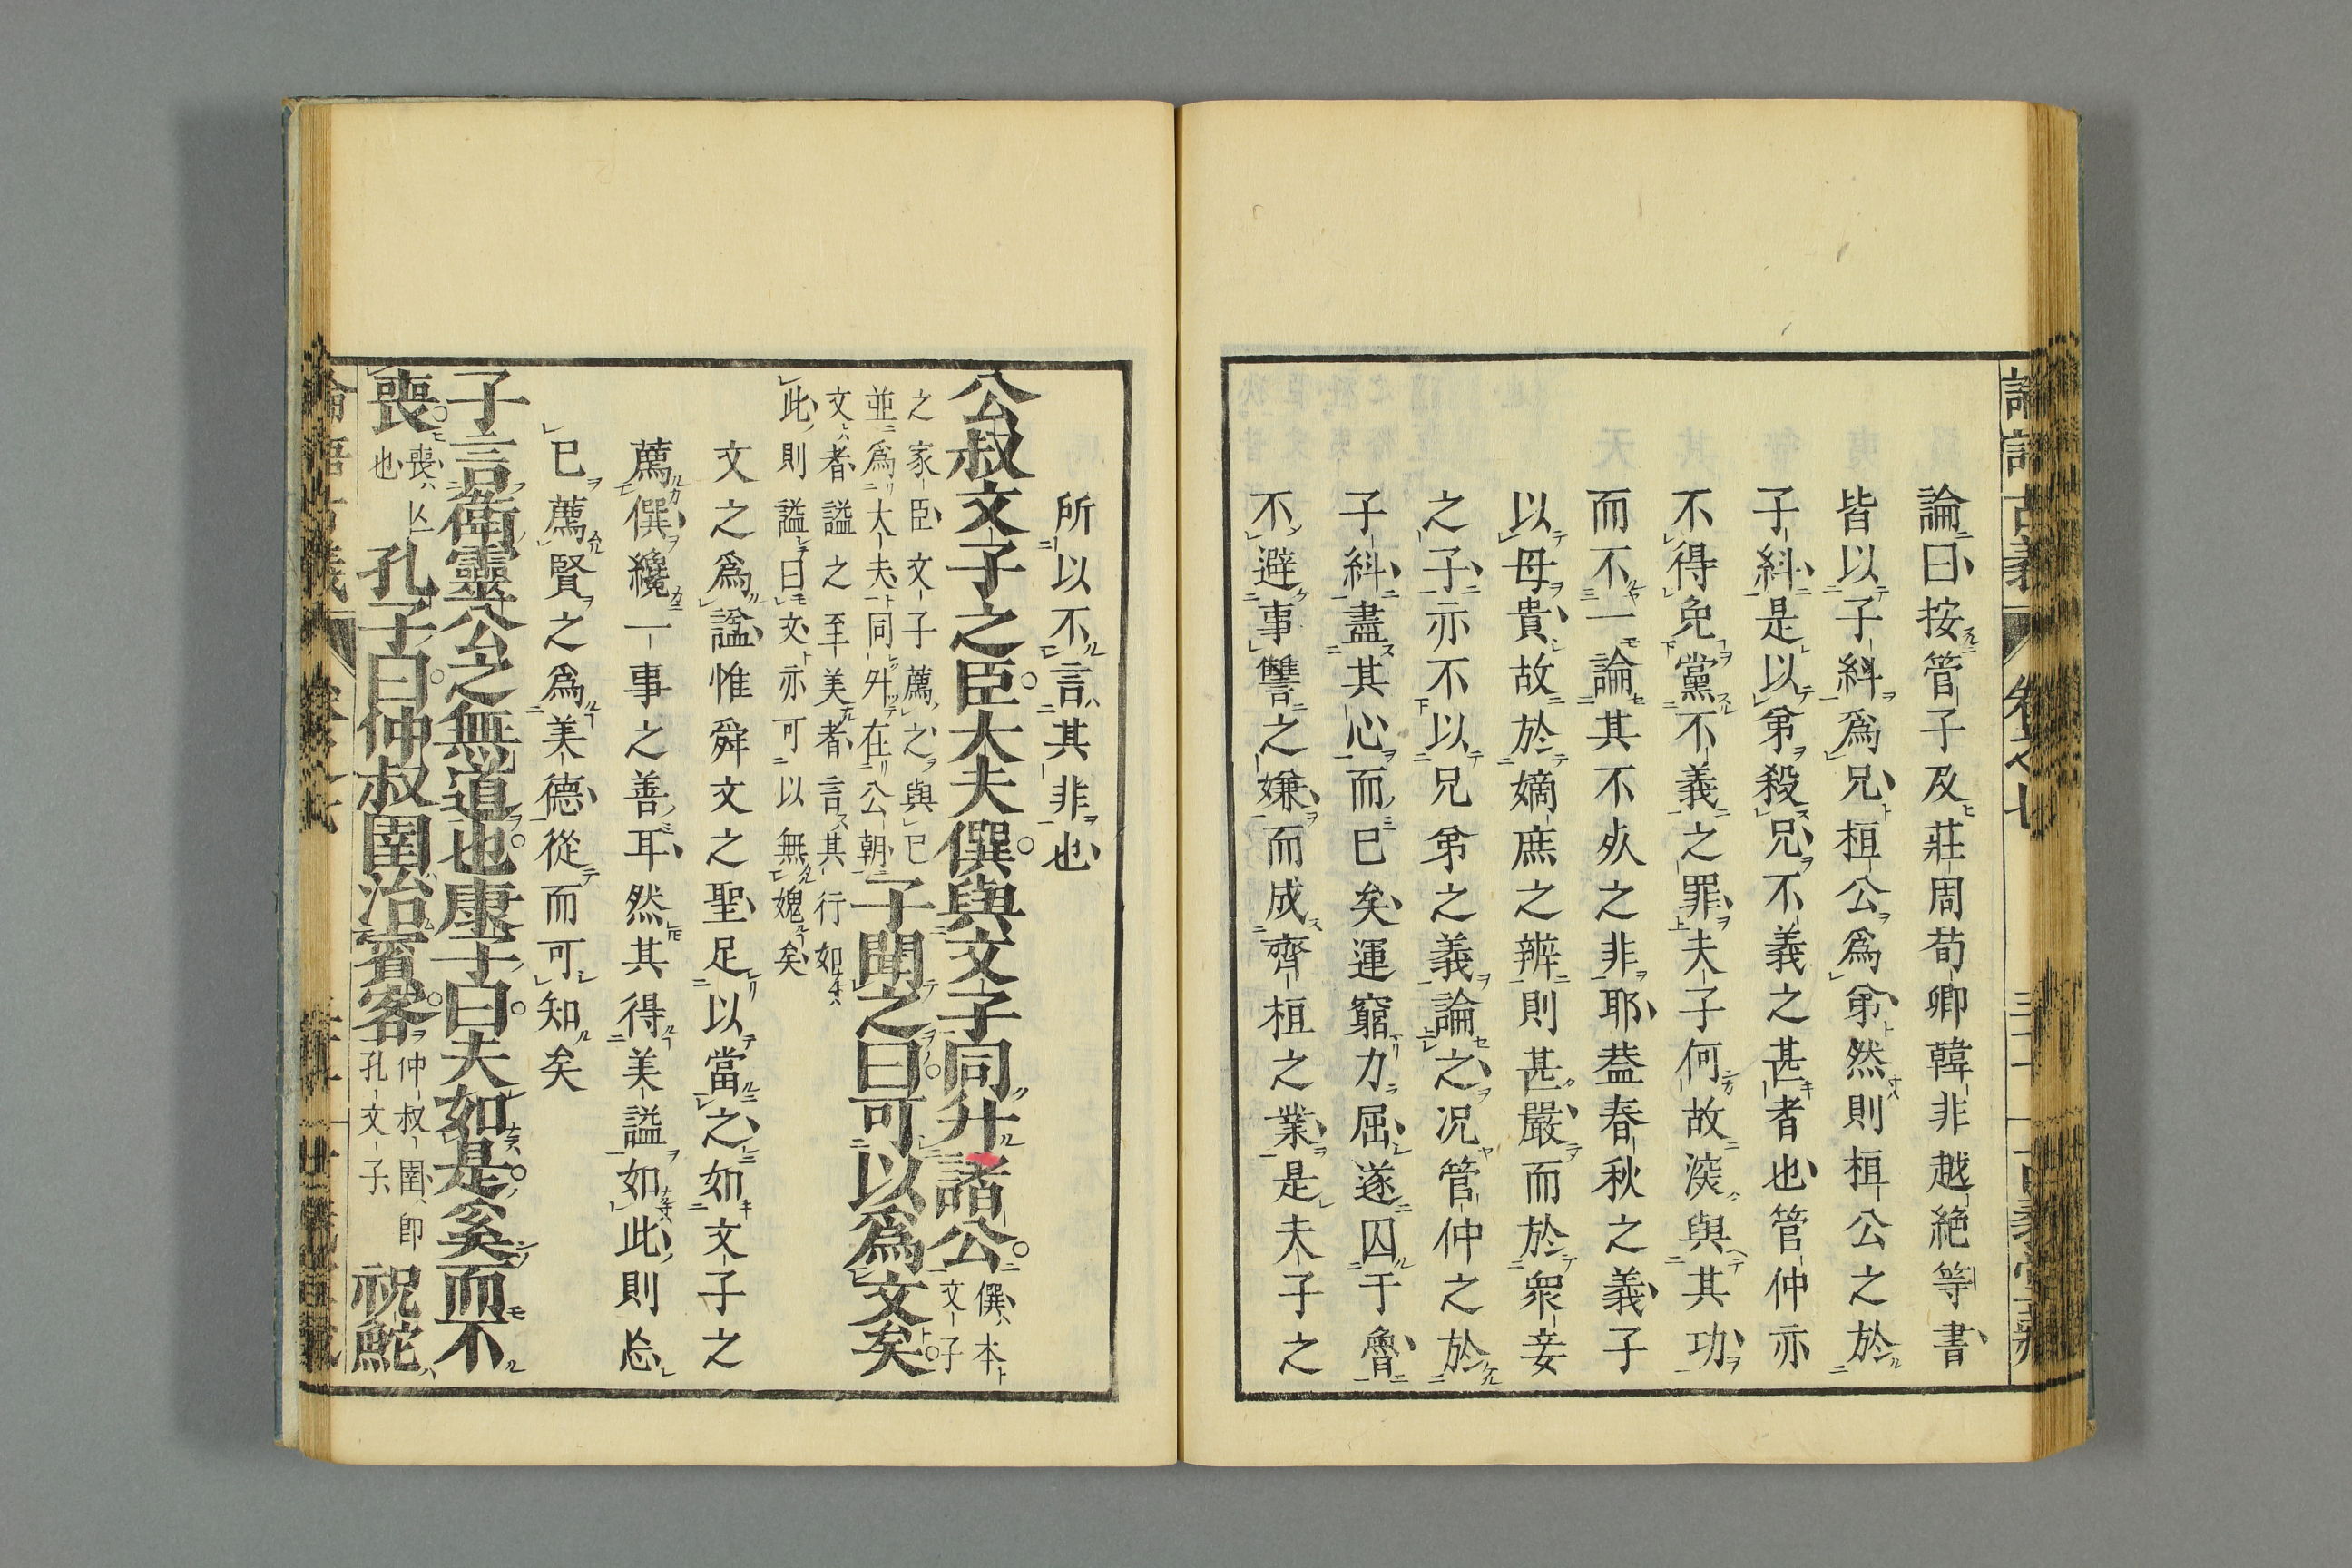 論曰按管子及莊周荀卿韓非越絶等書
皆以子糾爲兄桓公爲弟然則桓公之於
子糾是以弟殺兄不義之甚者也管仲亦
不得免黨不義之罪夫子何故深與其功
而不一論其不是之非耶葢春秋之義子
以母貴故於嫡庶之辨則甚嚴而於衆妾
之子亦不以兄弟之義論之况管仲之於
子糾盡其心而已矣運窮力屈遂囚于魯
不避事讐之嫌而成齊桓之業是夫子之
所以不言其非也
公叔文子之臣大夫僎與文子同升諸公僎本文子
之家臣文子薦之與已
並爲大夫同升在公朝子聞之曰可以爲文矣
文者謚之至美者言其行如
此則謚曰文亦可以無媿矣
文之爲謚惟舜文之聖足以當之如文子之
薦僎纔一事之善耳然其得美謚如此則忘
已薦賢之爲美德從而可知矣
子言衛靈公之無道也康子曰夫如是奚而不
喪喪亾也孔子曰仲叔圉治賓客仲叔圉即孔文子祝鮀